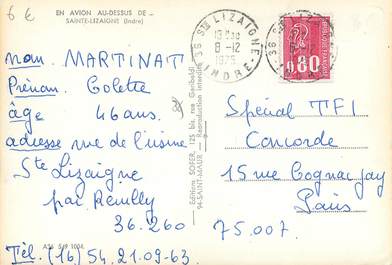 6 €
EN AVION AU-DESSUS DE ...
SAINTE-LIZAIGNE (Indre)
nom MARTINAT
Prénom. Colette
âge 46 ans.
adresse rue de l'usine
Ste Lizaigne
par Reuilly
36.260
Tél. (16) 54.21.09-63.
A36 519 1004
Editions SOFER, 125 bis, rue Garibaldi
94-SAINT-MAUR — Reproduction interdite
36 STE LIZAIGNE
8-12
1975
INDRE
0,80
Spécial TF1
Concorde
15 rue Cognac Jay
Paris
75.007.